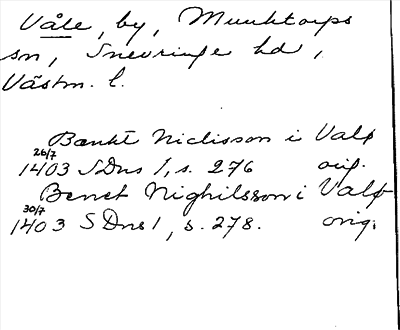 Våle, by, Munktorps
sn, Snevringe hd,
Västm. l.
Benkt Niclisson i Valf
26/7
1403 SDns 1, s. 276 orig.
Benct Nighilsson i Valf
30/7
1403 SDns 1, s. 278. orig.